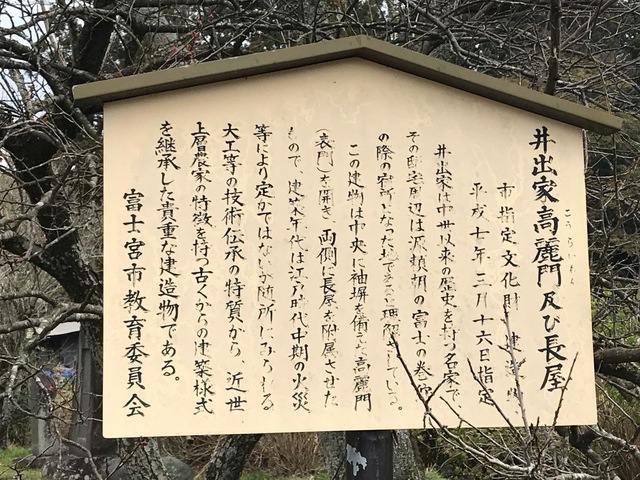 井出家高麗門及び長屋
こうらいもん
市指定文化財 建造物
平成十年三月十六日指定
井出家は中世以来の歴史を持つ名家で
その邸宅周辺は源頼朝の富士の巻狩
の際の宿所になった地であると理解されている。
この建物は中央に袖塀を備えた高麗門
(表門)を開き、両側に長屋を附属させた
もので、建築年代は江戸時代中期の火災
等により定かではないが随所にみられる
大工等の技術伝承の特質から、近世
上層農家の特徴を持つ古くからの建築様式
を継承した貴重な建造物である。
富士宮市教育委員会